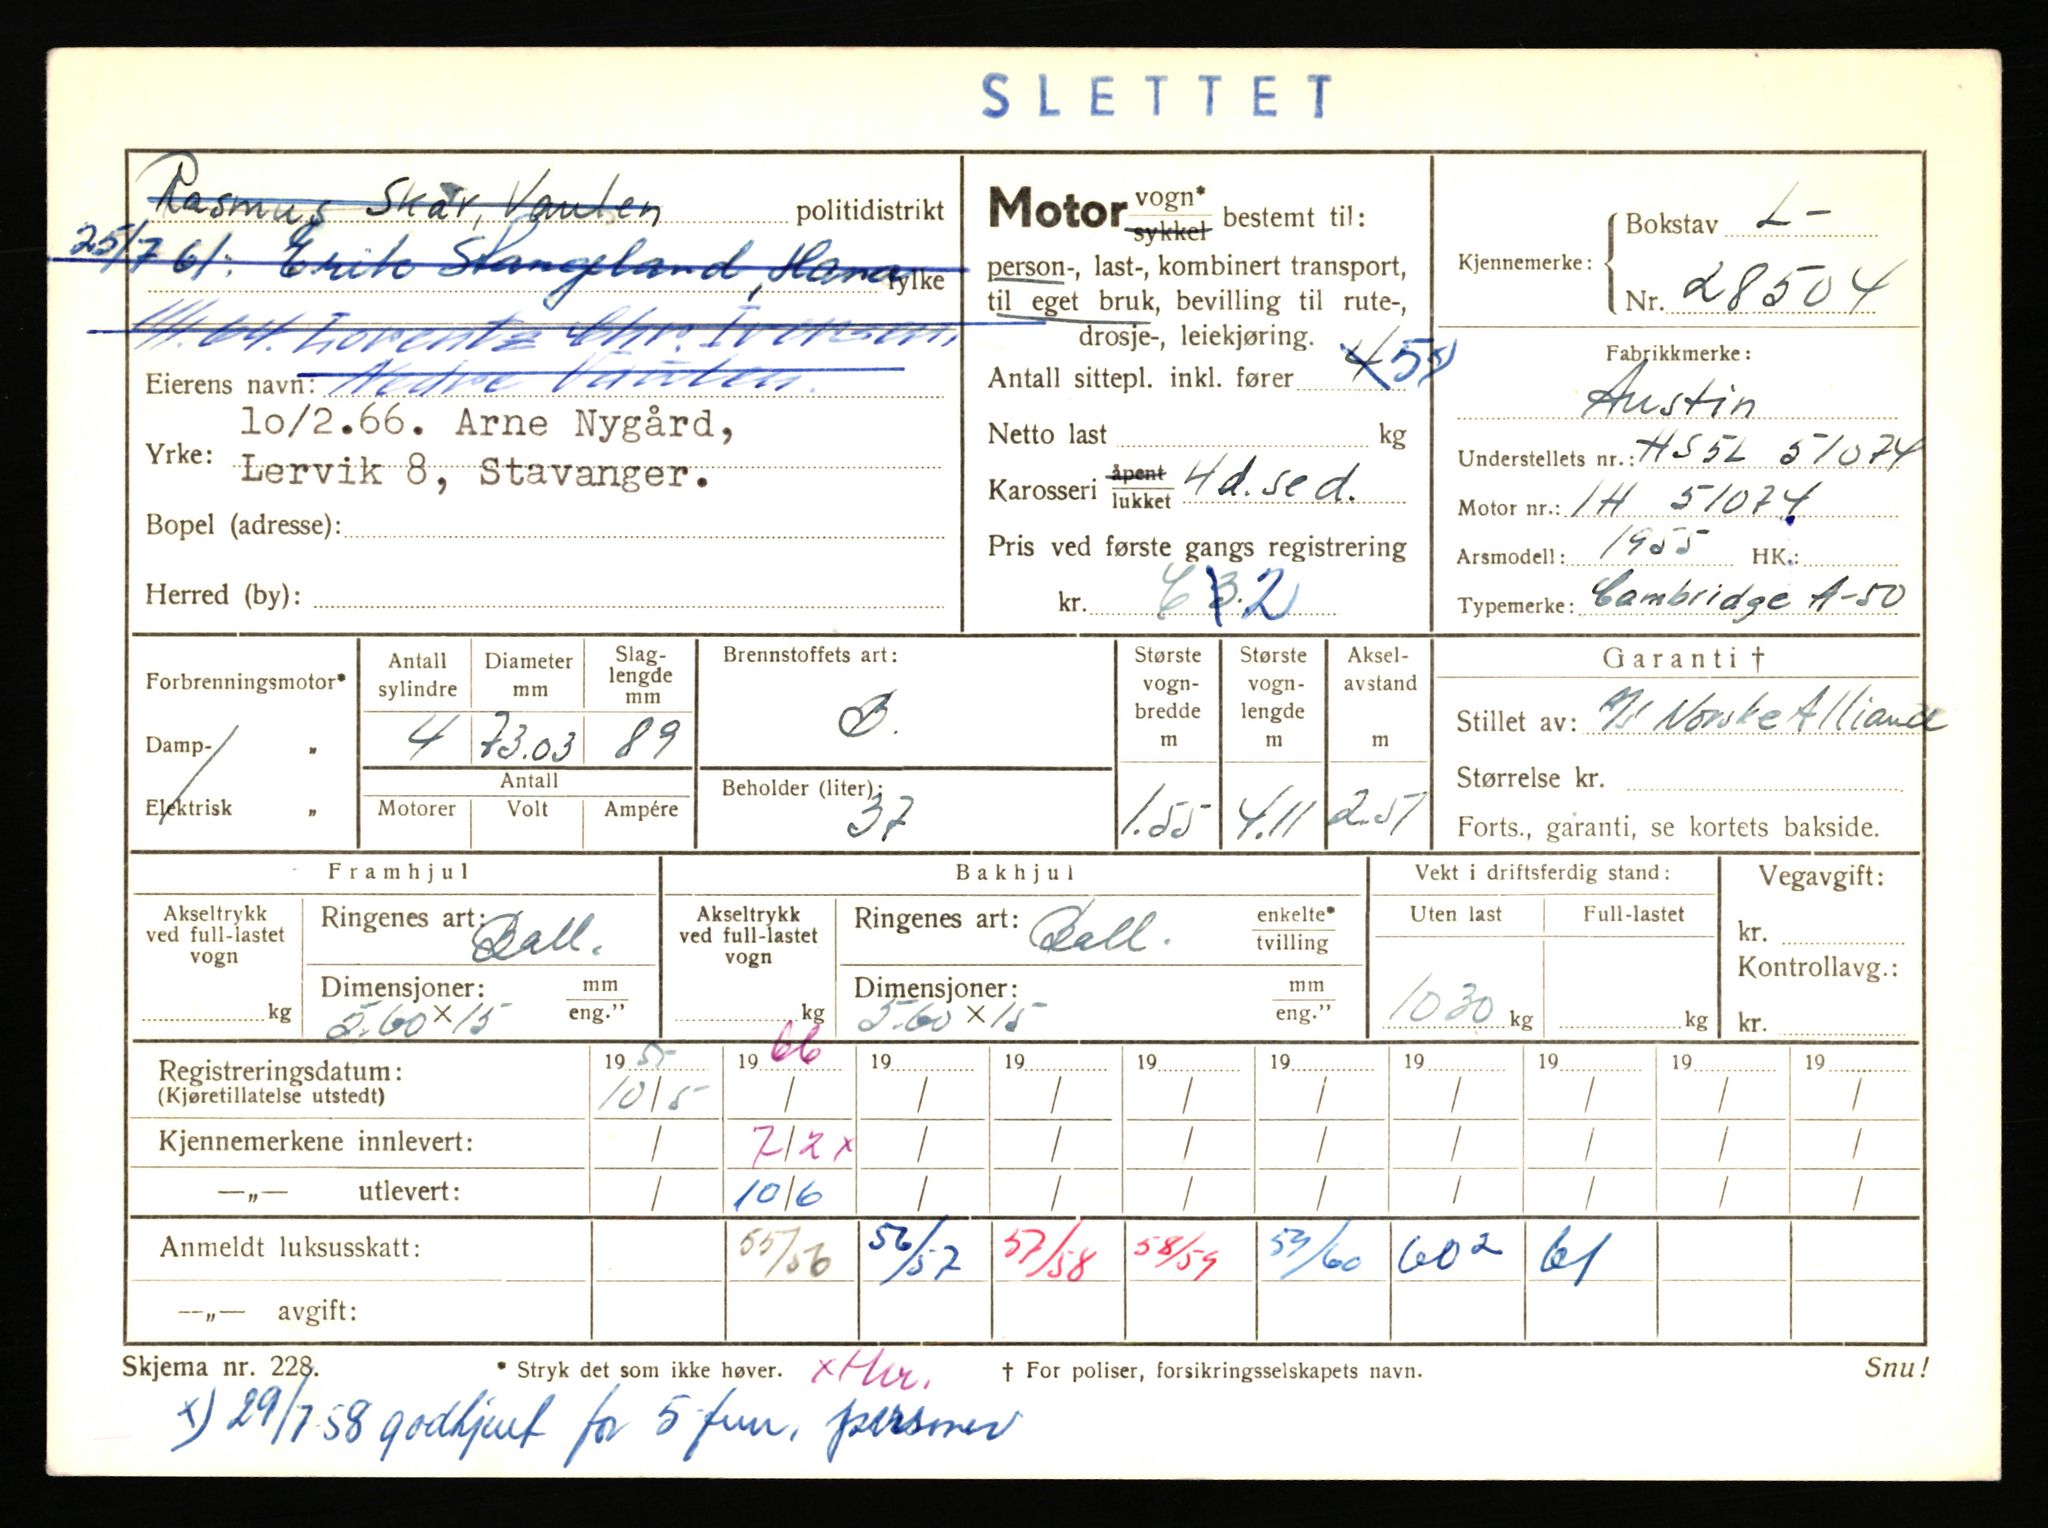 SLETTET
Rasmus Skår, Vaulen politidistrikt
25/7 61: Erik Stangeland, Hana fylke
64. Lorentz Chr. Iversen,
Eierens navn: Nedre Vaulen.
10/2.66. Arne Nygård,
Yrke: Lervik 8, Stavanger.
Bopel (adresse):
Herred (by):
Motor vogn* sykkel bestemt til:
person-, last-, kombinert transport,
til eget bruk, bevilling til rute-,
drosje-, leiekjøring.
Antall sittepl. inkl. fører 4 5
Netto last kg
Karosseri åpent lukket 4 d. sed.
Pris ved første gangs registrering
kr. 2
Kjennemerke: Bokstav L-
Nr. 28504
Fabrikkmerke:
Austin
Understellets nr.: HS5L 51074
Motor nr.: 1H 51074
Arsmodell: 1955 HK.:
Typemerke: Cambridge A-50
Forbrenningsmotor*
Damp- „
Elektrisk „
Antall sylindre Diameter mm Slag-lengde mm
4 73.03 89
Antall
Motorer Volt Ampére
Brennstoffets art:
B.
Beholder (liter):
37
Største vogn-bredde m Største vogn-lengde m Aksel-avstand m
1.55 4.11 2.51
Garanti †
Stillet av: A/S Norske Alliance
Størrelse kr.
Forts., garanti, se kortets bakside.
Framhjul Bakhjul Vekt i driftsferdig stand: Vegavgift:
Akseltrykk ved full-lastet vogn kg
Ringenes art: Ball.
Dimensjoner: mm eng."
5.60 x 15
Akseltrykk ved full-lastet vogn kg
Ringenes art: Ball. enkelte* tvilling
Dimensjoner: mm eng."
5.60 x 15
Uten last Full-lastet
1030 kg kg
kr.
Kontrollavg.:
kr.
Registreringsdatum: 1955 1966 19 19 19 19 19 19 19 19
(Kjøretillatelse utstedt) 10/5 / / / / / / / / /
Kjennemerkene innlevert: / 7/2 x / / / / / / / /
—„— utlevert: / 10/6 / / / / / / / /
Anmeldt luksusskatt: 55/56 56/57 57/58 58/59 59/60 60² 61
—„— avgift:
Skjema nr. 228. * Stryk det som ikke høver. x Hvr. † For poliser, forsikringsselskapets navn. Snu!
x) 29/7 58 godkjent for 5 fem, personer